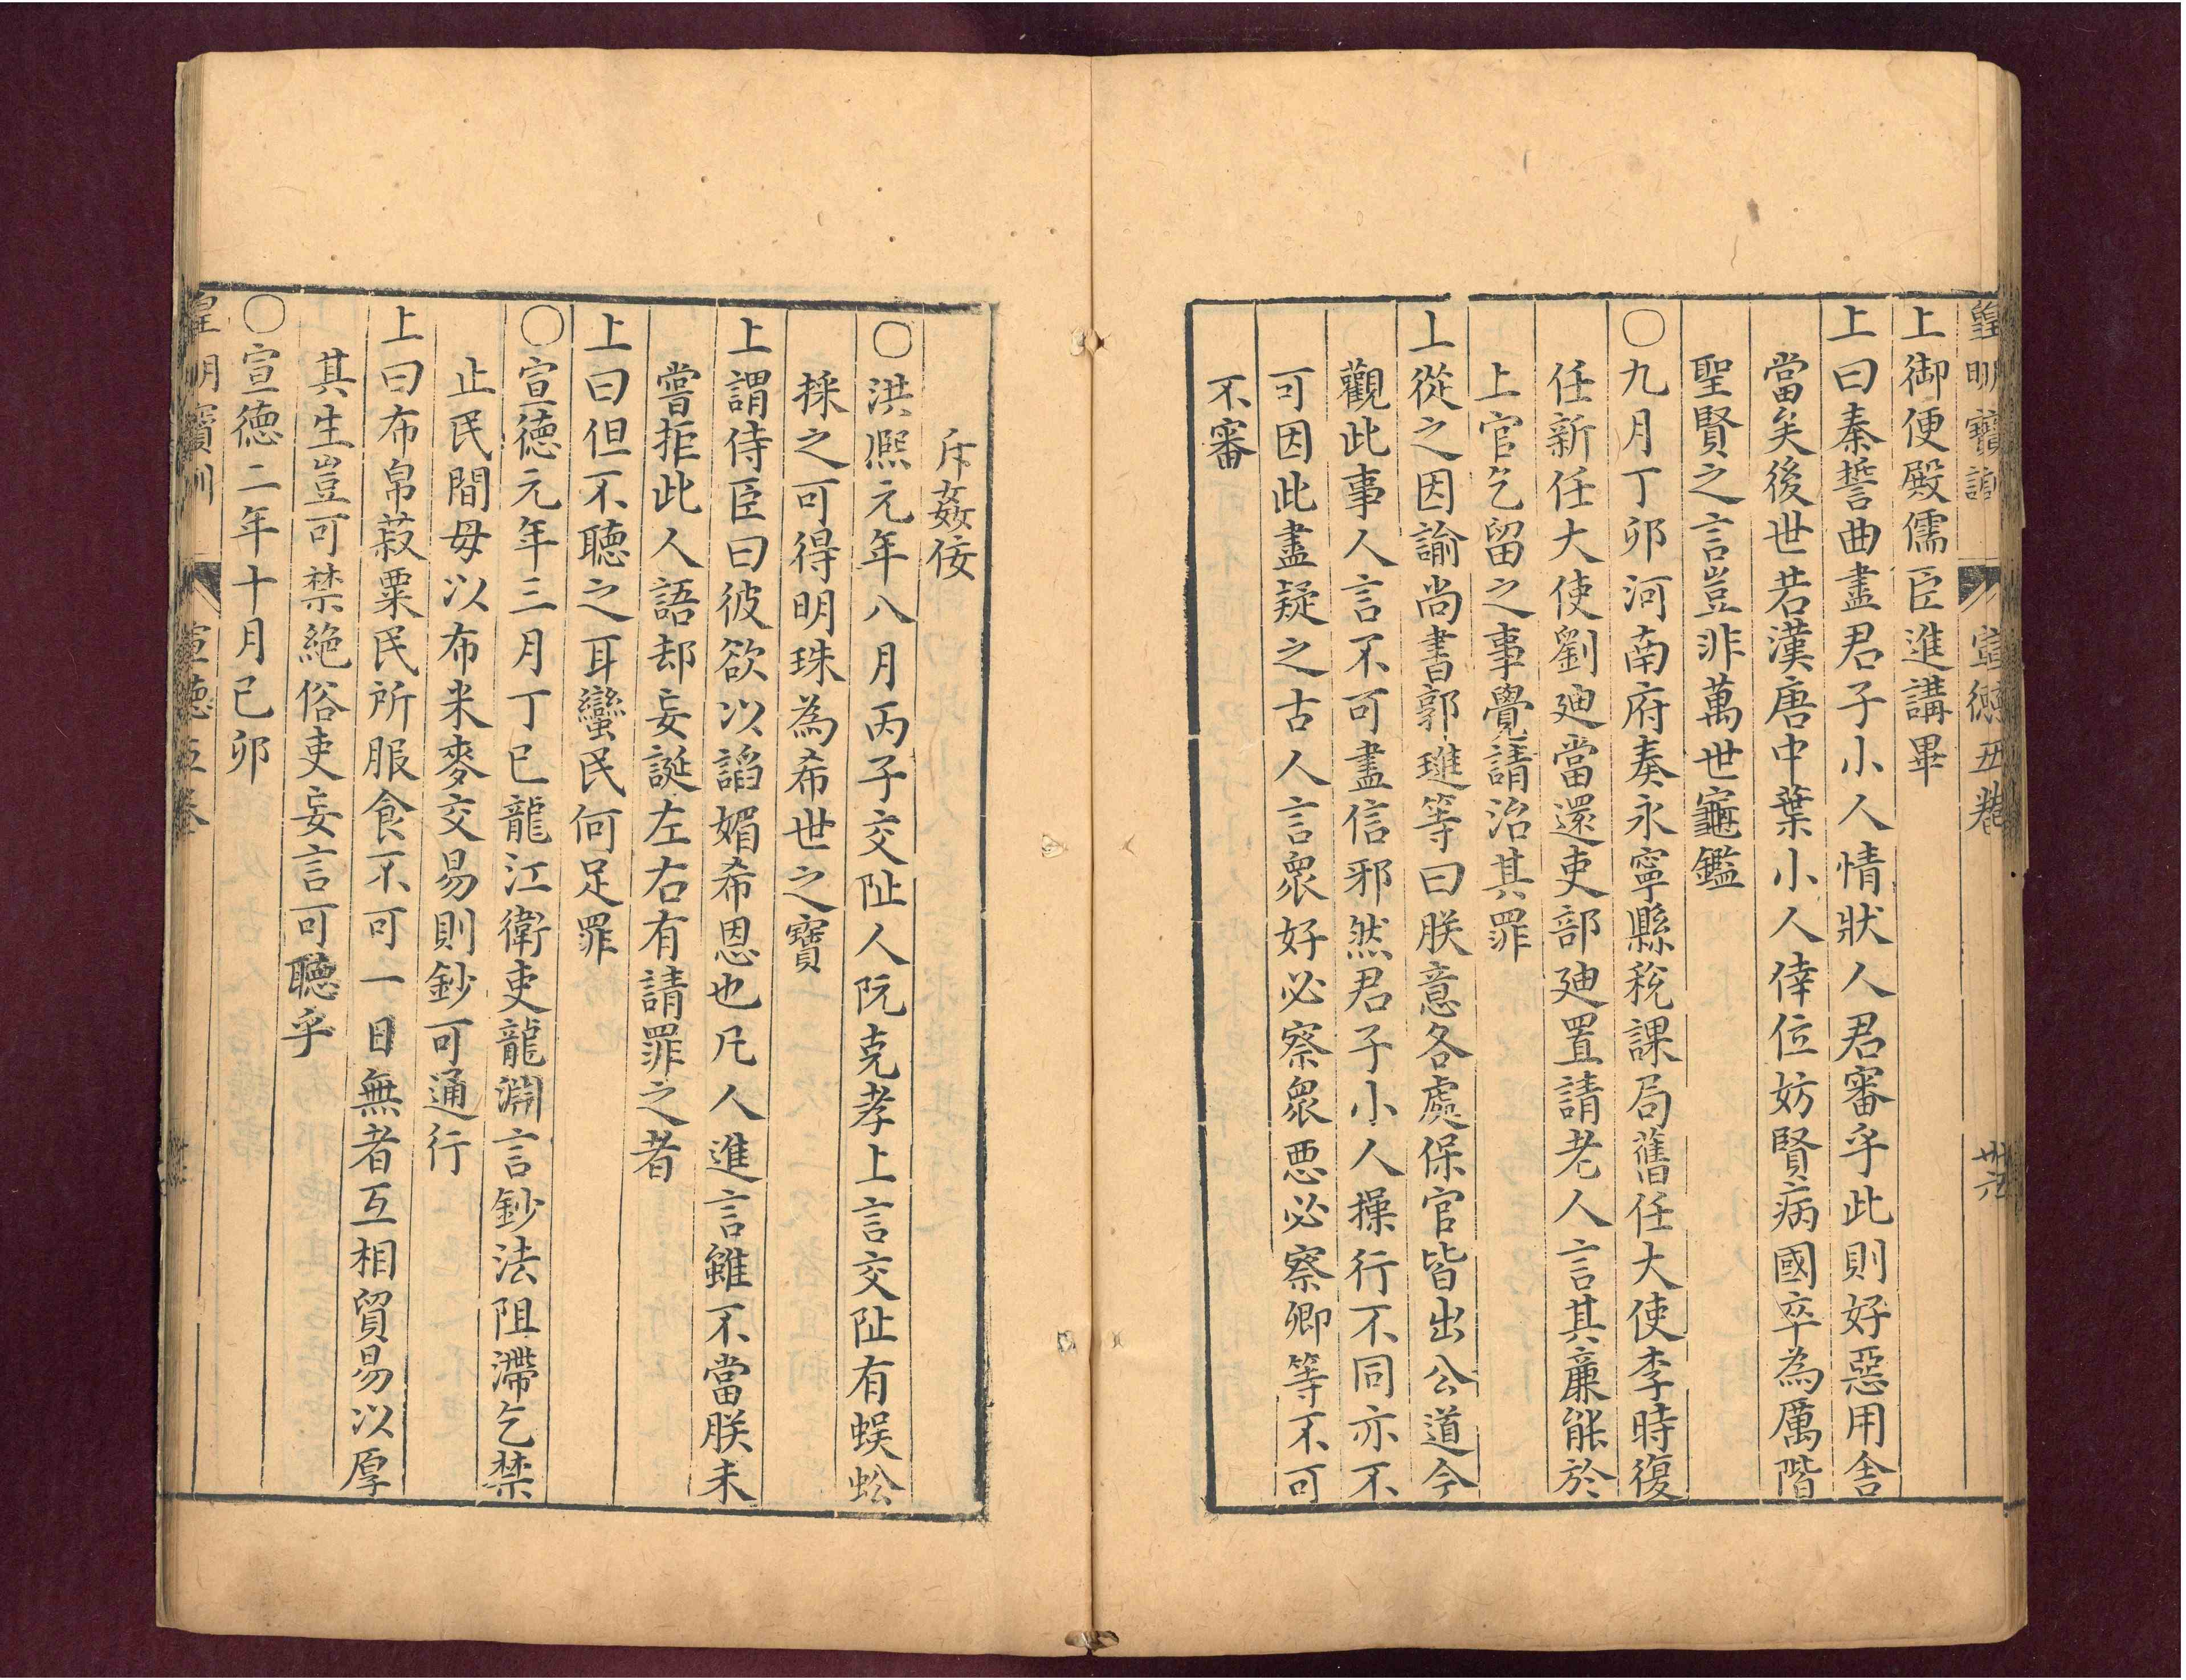 皇明寶訓 宣德五卷 卅六
上御便殿儒臣進講畢
上曰秦誓曲盡君子小人情狀人君審乎此則好惡用舍
當矣後世若漢唐中葉小人倖位妨賢病國卒為厲階
聖賢之言豈非萬世龜鑑
〇九月丁卯河南府奏永寧縣稅課局舊任大使李時復
任新任大使劉廸當還吏部廸置請老人言其廉能於
上官乞留之事覺請治其罪
上從之因諭尚書郭璡等曰朕意各處保官皆出公道今
觀此事人言不可盡信邪然君子小人操行不同亦不
可因此盡疑之古人言衆好必察衆惡必察卿等不可
不審
斥姦佞
〇洪熈元年八月丙子交阯人阮克孝上言交阯有蜈蚣
採之可得明珠為希世之寶
上謂侍臣曰彼欲以諂媚希恩也凡人進言雖不當朕未
嘗拒此人語却妄誕左右有請罪之者
上曰但不聽之耳蠻民何足罪
〇宣德元年三月丁巳龍江衛吏龍淵言鈔法阻滯乞禁
止民間毋以布米麥交易則鈔可通行
上曰布帛菽粟民所服食不可一日無者互相貿易以厚
其生豈可禁絶俗吏妄言可聽乎
〇宣德二年十月己卯
皇明寶訓 宣德五卷